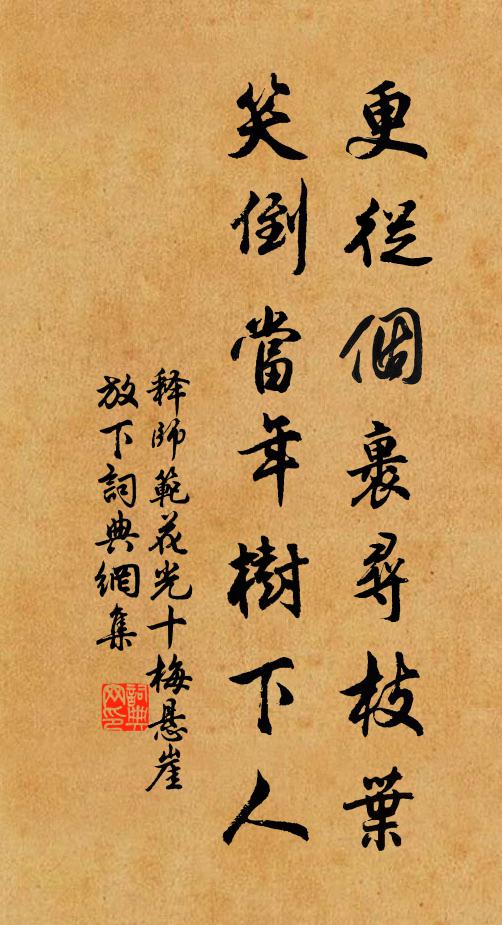 更從個裏尋枝葉
笑倒當年樹下人
释師範花光十梅悬崖
放下詞典網集
詞典
网印